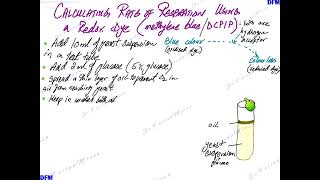 DFM
DFM
CALCULATING RATE OF RESPIRATION USING
a Redox dye (methylene blue/DCPIP) → both are
hydrogen
acceptor
• Add 10ml of yeast suspension
in a test tube
blue colour
(oxidised dye)
colourless
(reduced dye)
• Add 5ml of glucose (5% glucose)
• Spread a thin layer of oil to prevent O₂ in
air from
• Keep in water bath at
oil
yeast
suspension
glucose
DFM
DFM